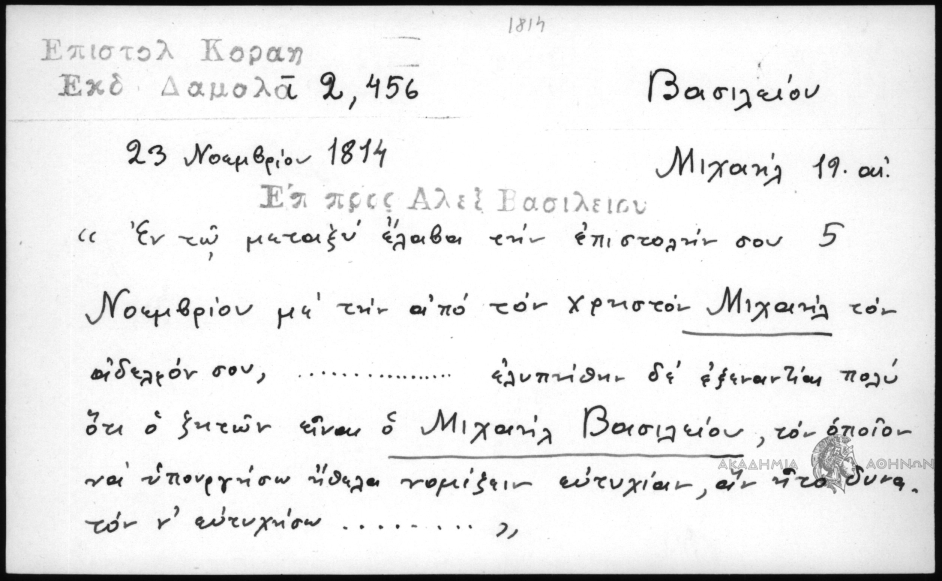 1814
Επιστολ Κοραη
Εκδ Δαμολᾶ 2,456
Βασιλείου
23 Νοεμβρίου 1814
Μιχαήλ 19. αἰ.
Ἐπ προς Αλεξ Βασιλειου
« Ἐν τῷ μεταξὺ ἔλαβα τὴν ἐπιστολήν σου 5
Νοεμβρίου μὲ τὴν ἀπό τὸν χρηστὸν Μιχαήλ τὸν
ἀδελφόν σου, ................ ἐλυπήθην δέ ἐξεναντίας πολύ
ὅτι ὁ ζητῶν εἶναι ὁ Μιχαήλ Βασιλείου, τὸν ὁποῖον
νὰ ὑπουργήσω ἤθελα νομίζειν εὐτυχίαν, ἂν ἦτο δυνα-
τόν ν' εὐτυχήσω ......... »
ΑΚΑΔΗΜΙΑ ΑΘΗΝΩΝ